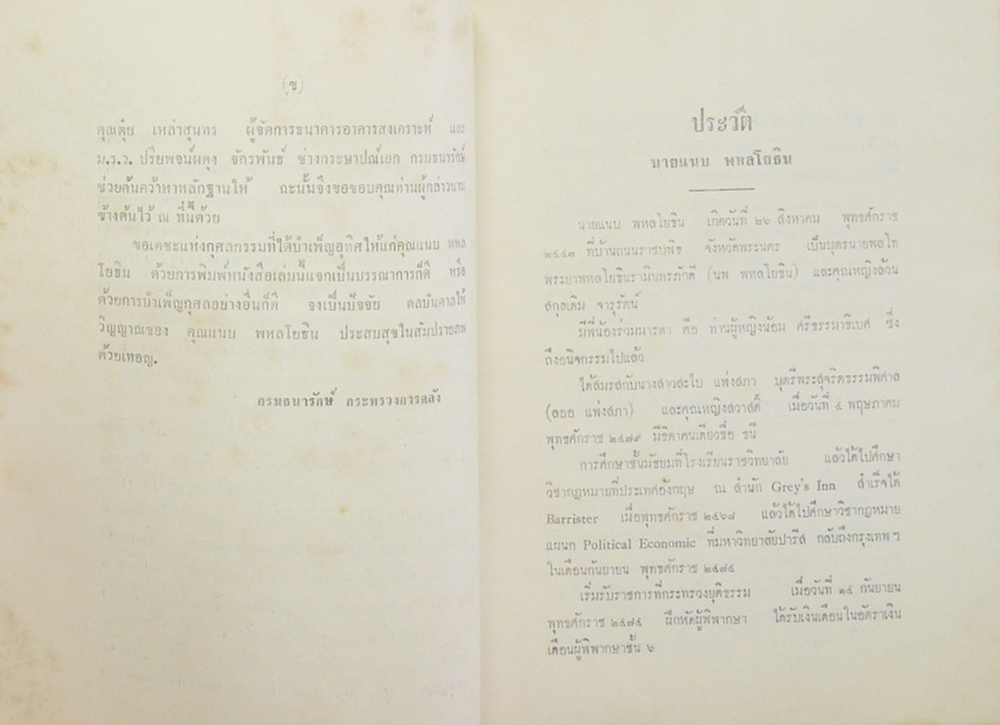 (ข)
คุณตุ๋ย เหล่าสุนทร ผู้จัดการธนาคารอาคารสงเคราะห์ และ
ม.ร.ว. ปรียพจน์ผดุง จักรพันธ์ ช่างกระษาปณ์เอก กรมธนารักษ์
ช่วยค้นคว้าหาหลักฐานให้ ฉะนั้นจึงขอขอบคุณท่านผู้กล่าวนาม
ข้างต้นไว้ ณ ที่นี้ด้วย
ขอเดชะแห่งกุศลกรรมที่ได้บำเพ็ญอุทิศให้แก่คุณแนบ พหล
โยธิน ด้วยการพิมพ์หนังสือเล่มนี้แจกเป็นบรรณาการก็ดี หรือ
ด้วยการบำเพ็ญกุศลอย่างอื่นก็ดี จงเป็นปัจจัย ดลบันดาลให้
วิญญาณของ คุณแนบ พหลโยธิน ประสบสุขในสัมปรายภพ
ด้วยเทอญ.
กรมธนารักษ์ กระทรวงการคลัง
ประวัติ
นายแนบ พหลโยธิน
นายแนบ พหลโยธิน เกิดวันที่ ๒๖ สิงหาคม พุทธศักราช
๒๔๔๓ ที่บ้านถนนราชบพิธ จังหวัดพระนคร เป็นบุตรนายพลโท
พระยาพหลโยธินรามินทรภักดี (นพ พหลโยธิน) และคุณหญิงล้วน
สกุลเดิม จารุรัตน์
มีพี่น้องร่วมมารดา คือ ท่านผู้หญิงน้อม ศรีธรรมาธิเบศ ซึ่ง
ถึงอนิจกรรมไปแล้ว
ได้สมรสกับนางสาวสะใบ แพ่งสภา บุตรีพระสุจริตธรรมพิศาล
(ลออ แพ่งสภา) และคุณหญิงสวาสดิ์ เมื่อวันที่ ๔ พฤษภาคม
พุทธศักราช ๒๔๗๙ มีธิดาคนเดียวชื่อ ชนี
การศึกษาชั้นมัธยมที่โรงเรียนราชวิทยาลัย แล้วได้ไปศึกษา
วิชากฎหมายที่ประเทศอังกฤษ ณ สำนัก Grey's Inn สำเร็จได้
Barrister เมื่อพุทธศักราช ๒๔๖๘ แล้วได้ไปศึกษาวิชากฎหมาย
แผนก Political Economic ที่มหาวิทยาลัยปารีส กลับถึงกรุงเทพ ฯ
ในเดือนกันยายน พุทธศักราช ๒๔๗๔
เริ่มรับราชการที่กระทรวงยุติธรรม เมื่อวันที่ ๑๔ กันยายน
พุทธศักราช ๒๔๗๔ ฝึกหัดผู้พิพากษา ได้รับเงินเดือนในอัตราเงิน
เดือนผู้พิพากษาชั้น ๖